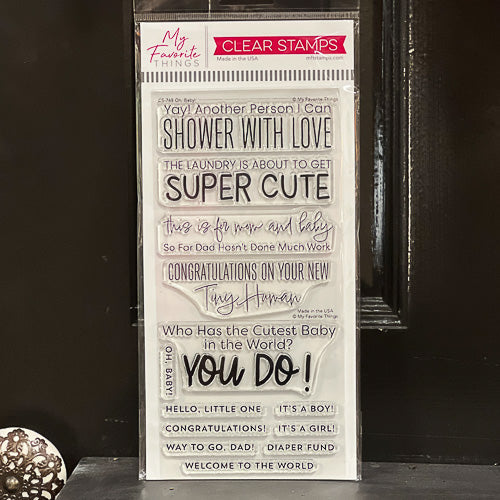 My
Favorite
THINGS
CLEAR STAMPS
Made in the USA
mftstamps.com
CS-748 Oh, Baby!
© My Favorite Things
Yay! Another Person I Can
SHOWER WITH LOVE
THE LAUNDRY IS ABOUT TO GET
SUPER CUTE
this is for mom and baby
So Far Dad Hasn't Done Much Work
CONGRATULATIONS ON YOUR NEW
Tiny Human
Made in the USA
© My Favorite Things
Who Has the Cutest Baby
in the World?
OH, BABY!
YOU DO!
HELLO, LITTLE ONE
IT'S A BOY!
CONGRATULATIONS!
IT'S A GIRL!
WAY TO GO, DAD!
DIAPER FUND
WELCOME TO THE WORLD